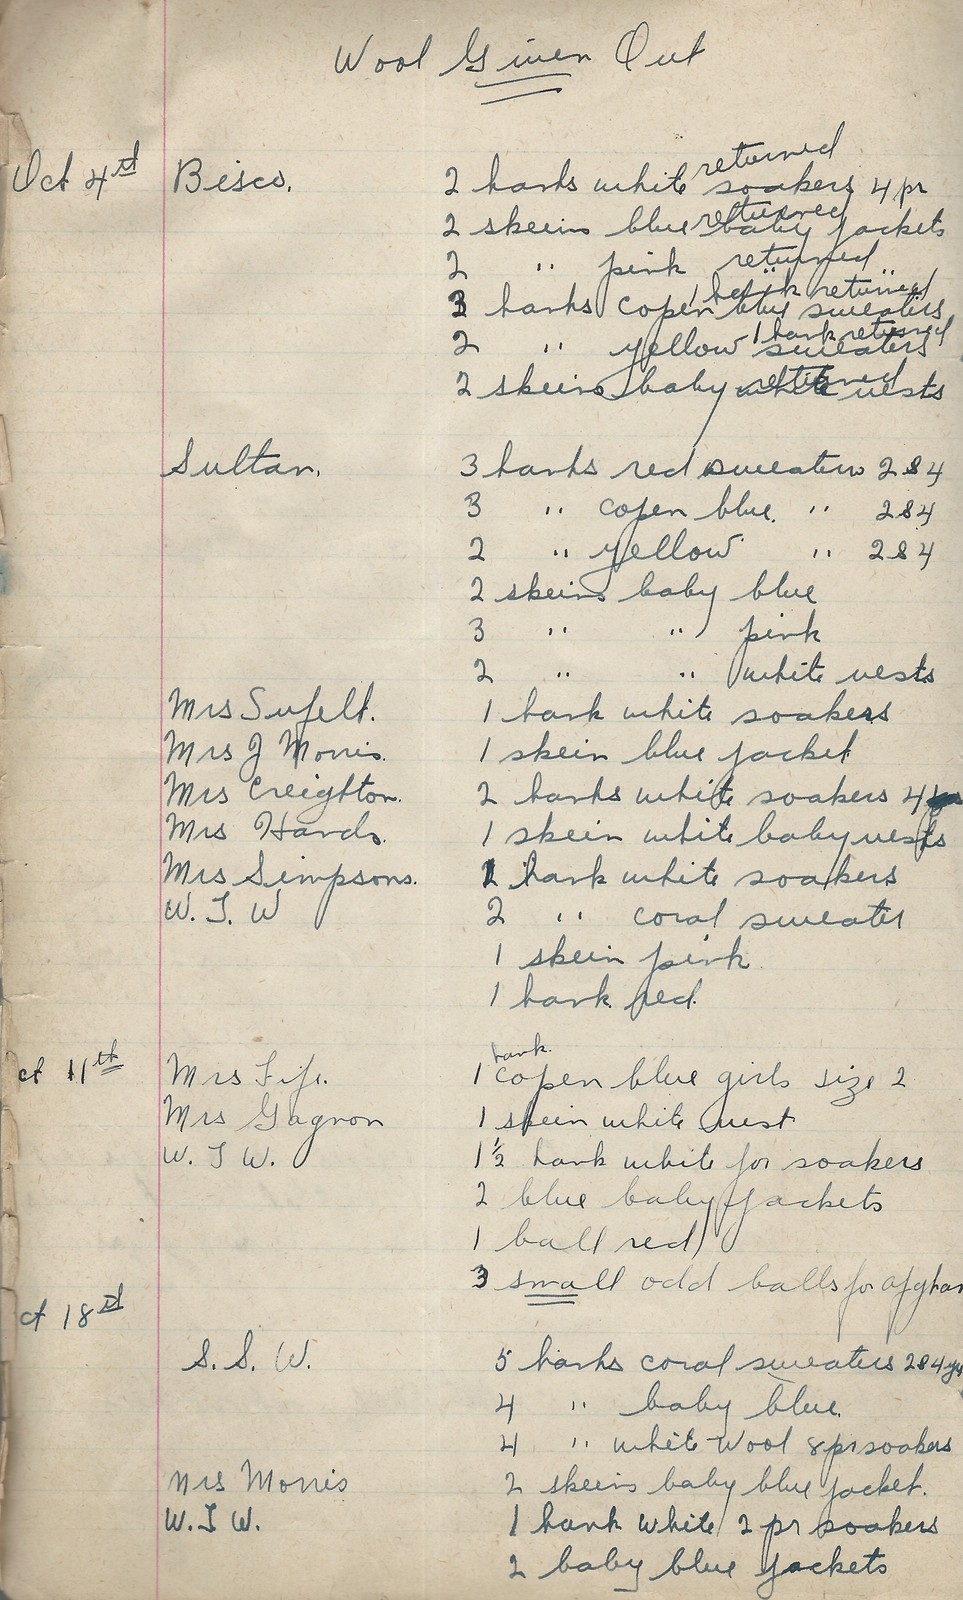 Wool Given Out
Oct 4st Bisco. 2 hanks white soakers 4 pr returned
2 skeins blue baby jackets returned
2 " pink returned
3 hanks copen blue sweaters 1 hank returned
2 " yellow sweaters 1 hank returned
2 skeins baby white vests returned
Sultan. 3 hanks red sweaters 2 & 4
3 " copen blue " 2 & 4
2 " yellow " 2 & 4
2 skeins baby blue
3 " " pink
2 " " white vests
Mrs 1 hank white soakers
Mrs J Morris. 1 skein blue jacket
Mrs Creighton. 2 hanks white soakers 4
Mrs Hards. 1 skein white baby vests
Mrs Simpsons. 1 hank white soakers
W. I. W 2 " coral sweater
1 skein pink
1 hank red.
ct 11th Mrs Fife. 1 hank copen blue girls size 2
Mrs Gagnon 1 skein white vest
W. I W. 1 1/2 hank white for soakers
2 blue baby jackets
1 ball red
3 small odd balls for afghan
ct 18st
S. S. W. 5 hanks coral sweaters 2 & 4 yr
4 " baby blue.
4 " white wool 8 pr soakers
Mrs Morris 2 skeins baby blue jacket.
W. I W. 1 hank white 2 pr soakers
2 baby blue jackets